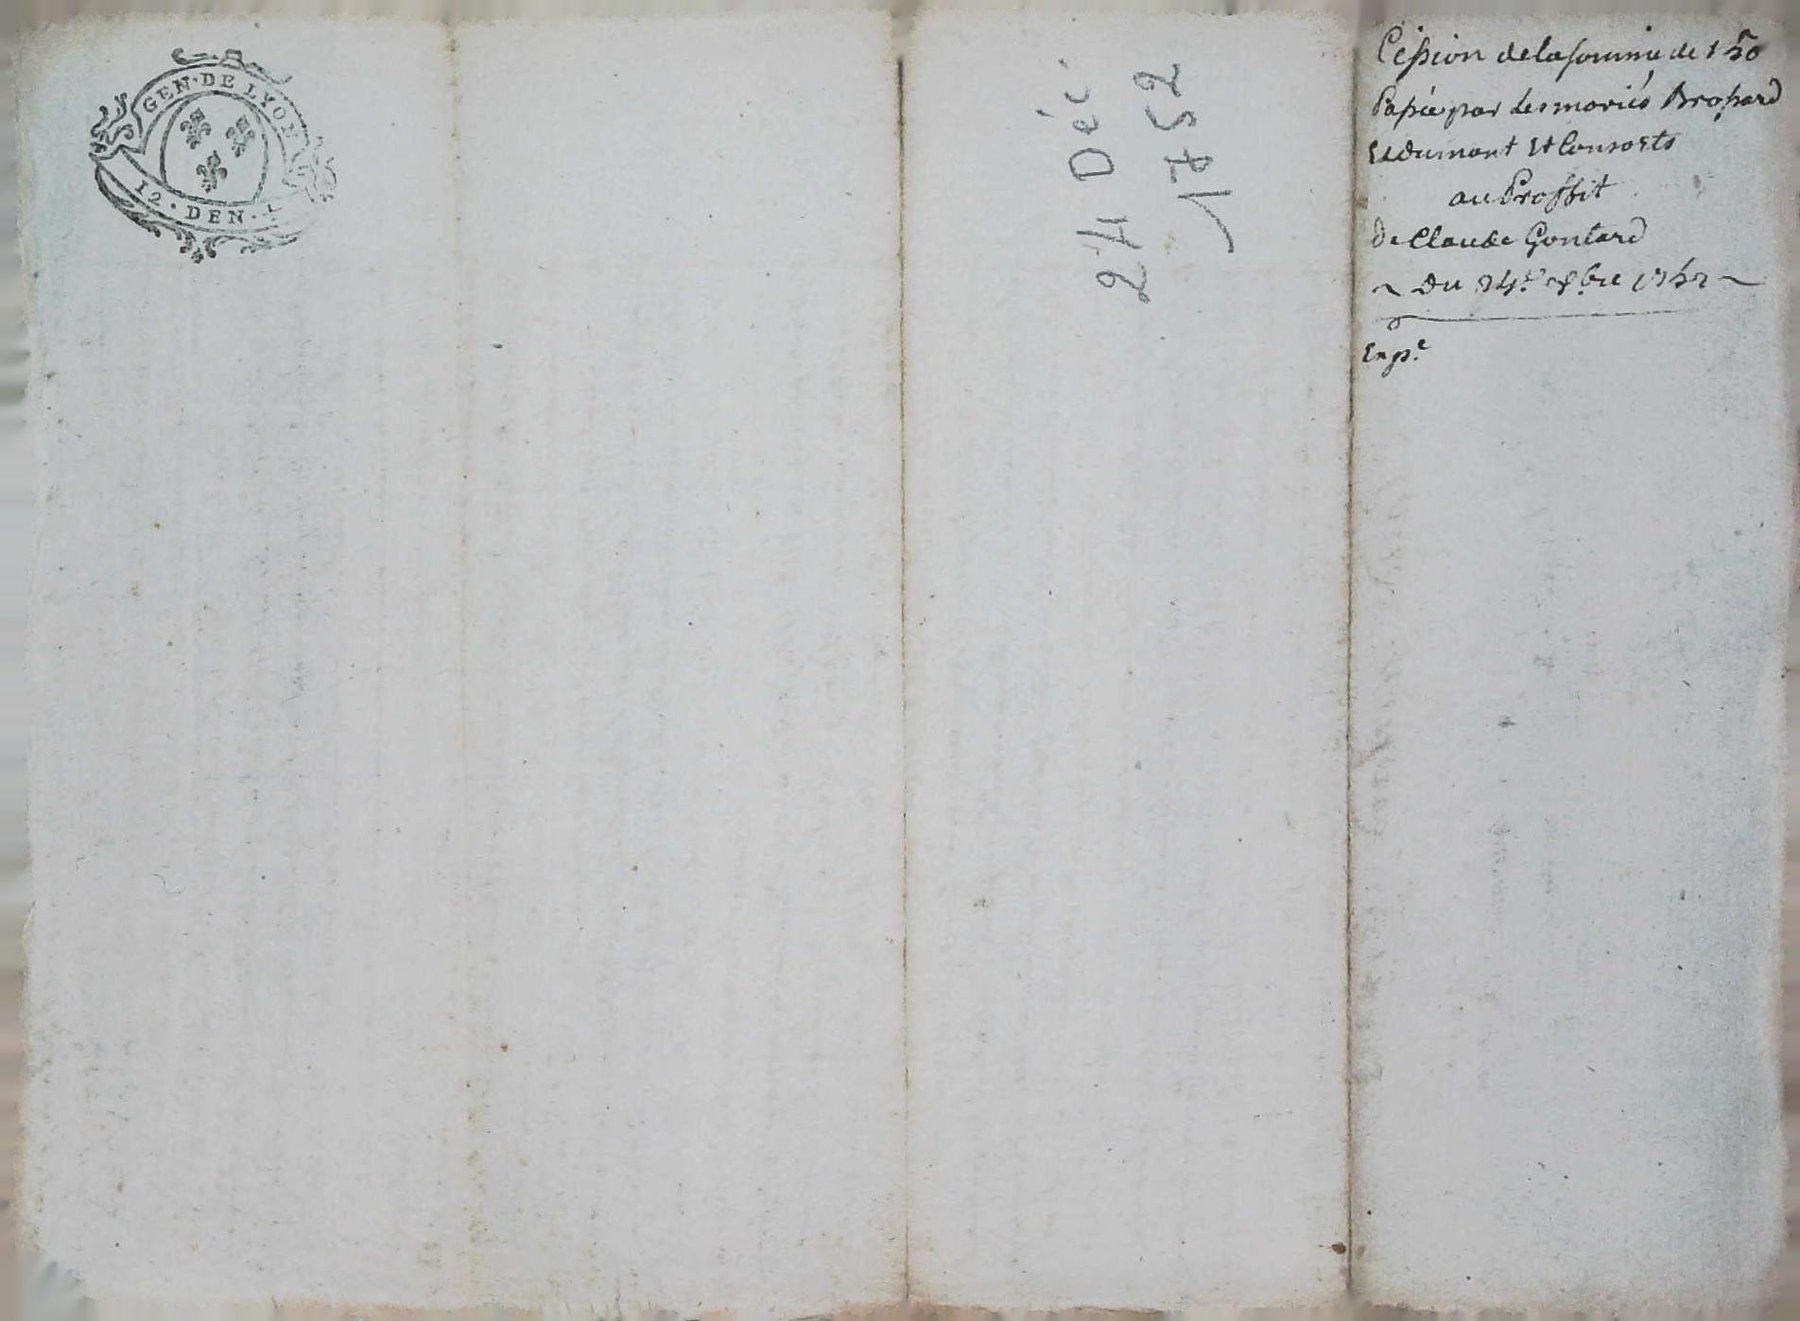 GEN · DE LYON
12 · DEN · 1
24 Déc
1752
Cession de la somme de 150
Passée par les mariés Brossard
Et dumont Et Consorts
au Proffit
De Claude Gontard
~ du 24e xbre 1752 ~
Exp.e